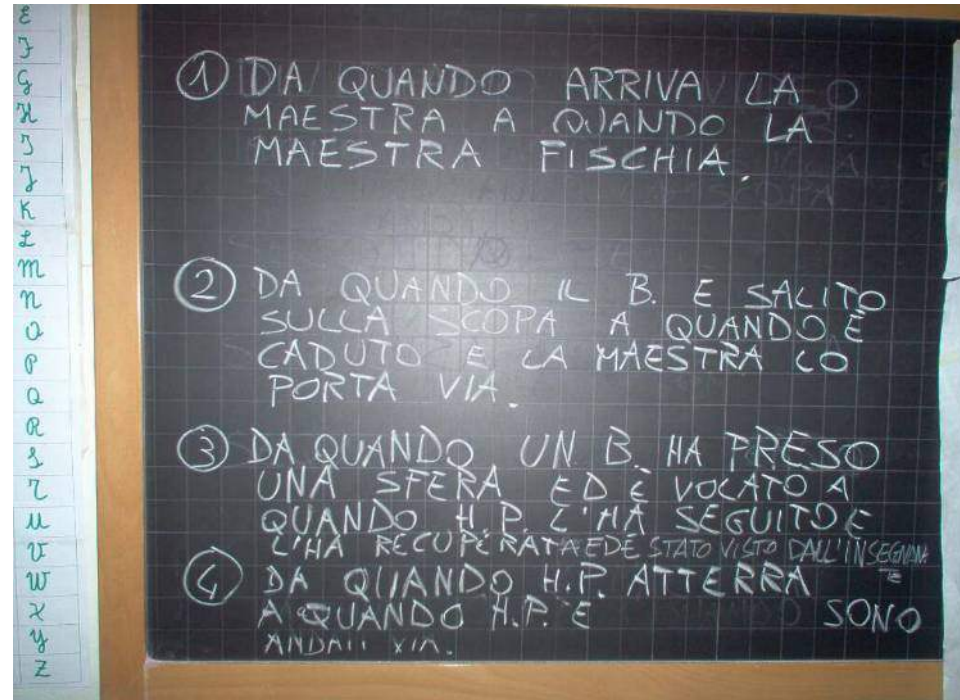 E
F
G
H
I
J
K
L
M
N
O
P
Q
R
S
T
U
V
W
X
Y
Z
① DA QUANDO ARRIVA LA
MAESTRA A QUANDO LA
MAESTRA FISCHIA.
② DA QUANDO IL B. E SALITO
SULLA SCOPA A QUANDO È
CADUTO E LA MAESTRA LO
PORTA VIA.
③ DA QUANDO UN B. HA PRESO
UNA SFERA ED È VOLATO A
QUANDO H.P. L'HA SEGUITO E
L'HA RECUPERATA ED È STATO VISTO DALL'INSEGNAN
TE
④ DA QUANDO H.P. ATTERRA
A QUANDO H.P. E SONO
ANDATI VIA.